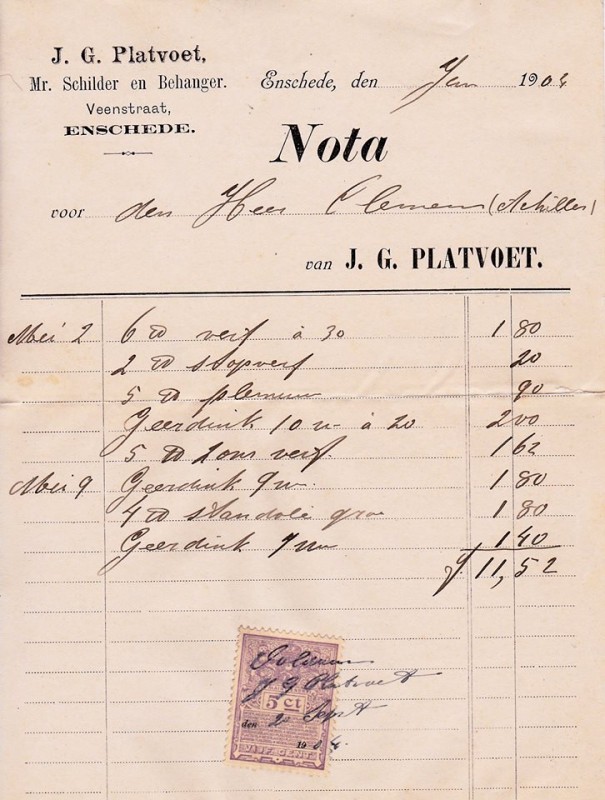 J. G. Platvoet,
Mr. Schilder en Behanger.
Veenstraat,
ENSCHEDE.
Enschede, den Jan 1904
Nota
voor den Heer Clemens (Achilles)
van J. G. PLATVOET.
Mei 2 6 ℔ verf à 30 1 80
2 ℔ stopverf 20
5 ℔ 90
Geerdink 10 u à 20 2 00
5 ℔ 2 ons verf 1 62
Mei 9 Geerdink 9 u. 1 80
4 ℔ standolie 1 80
Geerdink 7 u 1 40
f. 11,52
Voldaan
J G Platvoet
5 ct
den 2 Sept
1904.
VIJF CENT